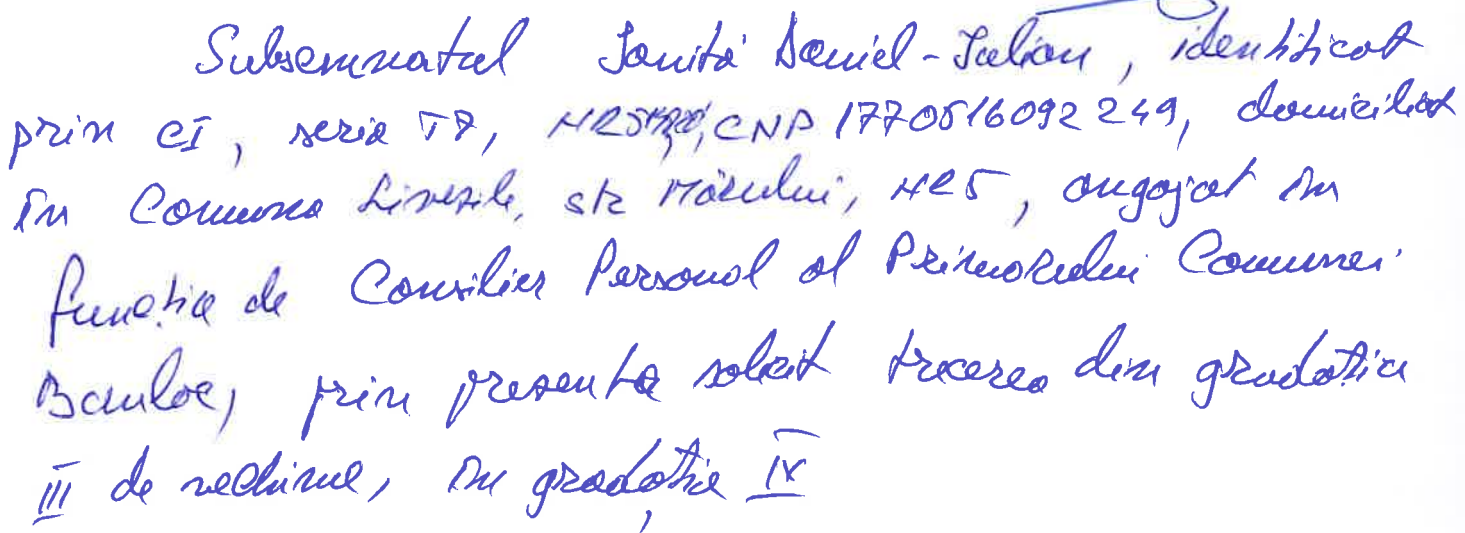 Subsemnatul Ioniță Daniel-Iulian, identificat
prin CI, seria TZ, NR CNP 1770516092249, domiciliat
în Comuna Livezile, str Mărului, NR5, angajat în
funcția de Consilier Personal al Primarului Comunei
Banloc, prin prezenta solicit trecerea din gradația
III de vechime, în gradația IV